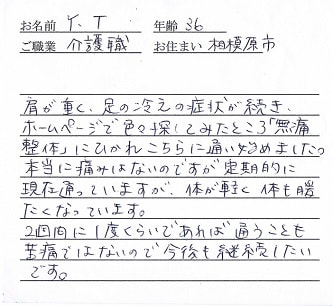 お名前 Y. T 年齢 36
ご職業 介護職 お住まい 相模原市
肩が重く、足の冷えの症状が続き、
ホームページで色々探してみたところ「無痛
整体」にひかれこちらに通い始めました。
本当に痛みはないのですが定期的に
現在通っていますが、体が軽く体も
たくなっています。
2週間に1度くらいであれば通うことも
苦痛ではないので今後も継続したい
です。